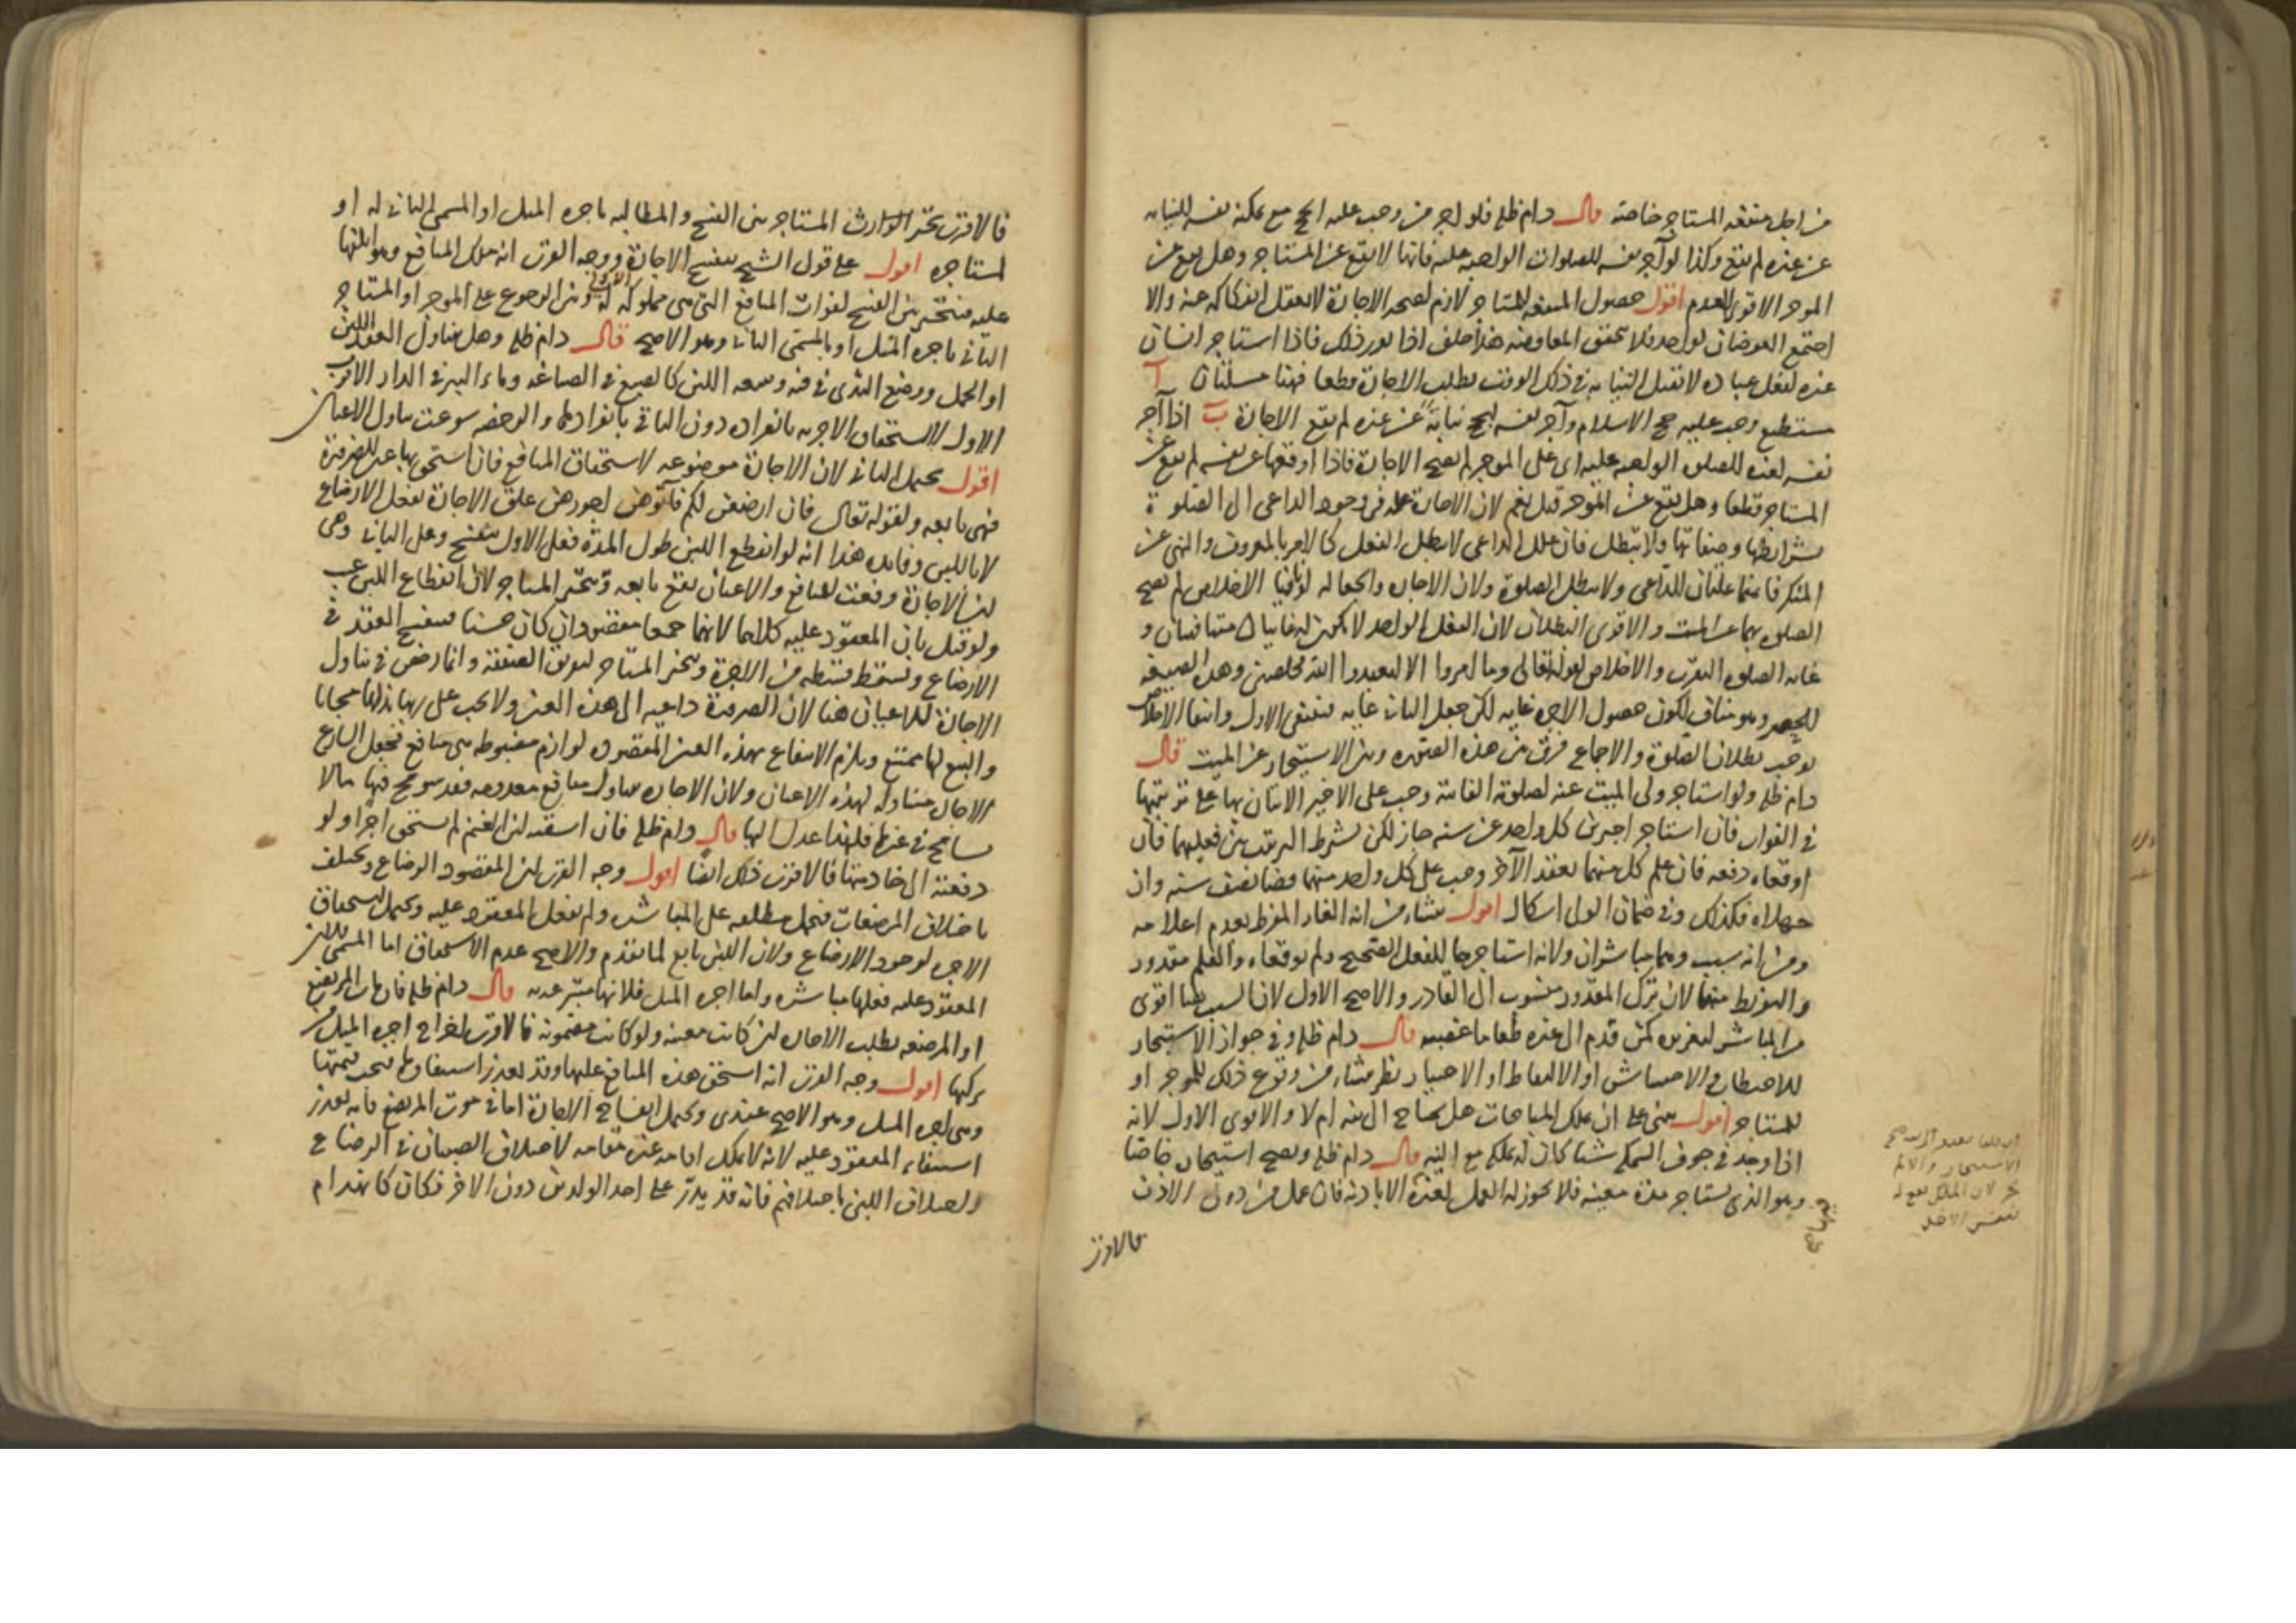 من اجل منفعه المستاجر خاصة قال دام ظله فلو اجر من وجب عليه الحج مع تمكنه نفسه للنيابه
عن غيره لم يقع وكذا لو آجر نفسه للصلوات الواجبه عليه فانها لا يقع عن المستاجر وهل يقع عن
الموجر الاقوى العدم اقول حصول المنفعه للمستاجر لازم لصحه الاجارة لا يعقل انفكاكه عنه والا
اجتمع العوضان لواحد فلا تحقق المعاوضه هذا خلف اذا تقرر ذلك فاذا استاجر انسان
غيره لفعل عباده لا تقبل النيابه في ذلك الوقت بطلت الاجارة قطعا فهنا مسئلتان آ
مستطيع وجب عليه حج الاسلام وآجر نفسه ليحج نيابة عن غيره لم يقع الاجارة ب اذا آجر
نفسه لغيره للصلوه الواجبه عليه اى على الموجر لم يصح الاجارة فاذا اوقعها عن نفسه لم يقع عن
المستاجر قطعا وهل يقع عن الموجر قيل نعم لان الاجارة عله فى وجود الداعى الى الصلوة
بشرائطها وصفاتها ولا تبطل فان علل الداعى لا يبطل الفعل كالامر بالمعروف والنهى عن
المنكر فانهما علتان للداعى ولا يبطل الصلوة ولان الاجاره والجعاله لو نافيا الاخلاص لم يصح
الصلوه بهما عن الميت والاقوى البطلان لان الفعل الواحد لا يكون له غايتان متنافيتان و
غايه الصلوه التقرب والاخلاص لقوله تعالى وما امروا الا ليعبدوا الله مخلصين وهذه الصيغه
للحصر وهو مناف لكون حصول الاجره غايه لكن جعل الثانى غايه فينتفى الاول وانتفا الاخلاص
يوجب بطلان الصلوة والاجماع فرق بين هذه الصوره وبين الاستيجار عن الميت قال
دام ظله ولو استاجر ولى الميت عنه لصلوته الفائتة وجب على الاجير الاتيان بها على ترتيبها
في الفوات فان استاجر اجيرين كل واحد عن سنه جاز لكن بشرط الترتيب بين فعليهما فان
اوقعاه دفعه فان علم كل منهما بعقد الآخر وجب على كل واحد منهما قضا نصف سنه وان
جهلاه فكذلك وفى ضمان الولى اشكال اقول ينشاء من انه الغار المفرط بعدم اعلامه
ومن انه سبب وهما مباشران ولانه استاجرهما للفعل الصحيح ولم يوقعاه والعلم مقدور
والتفريط منهما لان ترك المقدور منسوب الى القادر والاصح الاول لان السبب هنا اقوى
من المباشر لغروره كمن قدم الى غيره طعاما غصبه قال دام ظله وفى جواز الاستيجار
للاحتطاب او الاحتشاش او الالتقاط او الاحتياز نظر ينشاء من وقوع ذلك للموجر او
للمستاجر اقول مبنى على ان تملك المباحات هل يحتاج الى نيه ام لا والاقوى الاول لانه
اذا وجد في جوف السمكه شيئا كان له تملكه مع النيه قال دام ظله ويصح استيجار خاصا
وهو الذى يستاجر مدة معينه فلا يجوز له العمل لغيره الا باذنه فان عمل من دون الاذن
فالاقرب
فالاقرب تخير المستاجر بين الفسخ والمطالبه باجره المثل او المسمى الثانى له او
لمستاجره اقول على قول الشيخ ينفسخ الاجارة ووجه القرب انه ملك المنافع وهو اتلفها
عليه فيتخير بين الفسخ لفوات المنافع التى هى مملوكه له وبين الرجوع على الموجر او المستاجر
الثانى باجره المثل او بالمسمى الثانى وهو الاصح قال دام ظله وهل يتناول العقد اللبن
او الحمل ووضع الثدى فى فيه ويتبعه اللبن كالصبغ في الصباغه وماء البير فى الدار الاقرب
الاول لاستحقاق الاجر به بانفراده دون الباقى بانفرادها والرخصه سوغت تناول الاعيان
اقول يحتمل الثانى لان الاجارة موضوعه لاستحقاق المنافع فان استحق بها عين للضرورة
فهى تابعه ولقوله تعالى فان ارضعن لكم فآتوهن اجورهن علق الاجارة بفعل الارضاع
لا باللبن وفائده هذا انه لو انقطع اللبن طول المدة فعلى الاول ينفسخ وعلى الثانى وهى
ان الاجارة وقعت للمنافع والاعيان تقع تابعه يتخير المستاجر لان انقطاع اللبن عيب
ولو قيل بان المعقود عليه كلاهما لانهما جميعا مقصودان كان حسنا فينفسخ العقد فى
الارضاع ويسقط قسطه من الاجرة ويتخير المستاجر لتبعض الصفقة وانما رخص فى تناول
الاجارة للاعيان هنا لان الضرورة داعيه الى هذه العين ولا يجب على ربها بذلها مجانا
والبيع لها ممتنع ويلزم الانتفاع بهذه العين المقصوده لوازم مضبوطه هى منافع فجعل الشارع
الاجاره متناوله لهذه الاعيان ولان الاجاره تتناول منافع معدومه فقد سومح فيها ما لا
يسامح فى غيرها فلهذا عدل اليها قال دام ظله فان اسقته لبن الغنم لم يستحق اجرا ولو
دفعته الى خادمتها فالاقرب ذلك ايضا اقول وجه القرب ان المقصود الرضاع ويختلف
باختلاف المرضعات فيحمل مطلقه على المباشره ولم يفعل المعقود عليه ويحتمل استحقاق
الاجره لوجود الارضاع ولان اللبن تابع لما تقدم والاصح عدم الاستحقاق اما المسمى فلان
المعقود عليه فعلها مباشره واما اجره المثل فلانها متبرعه به قال دام ظله فان مات المرتضع
او المرضعه بطلت الاجاره ان كانت معينه ولو كانت مضمونه فالاقرب اخراج اجره المثل من
تركتها اقول وجه القرب انه استحق هذه المنافع عليها وقد تعذر استيفاوها فتجب قيمتها
وهى اجره المثل وهو الاصح عندى ويحتمل انفساخ الاجارة اما فى موت المرتضع فانه تعذر
استيفاء المعقود عليه لانه لا يمكن اقامه غيره مقامه لاختلاف الصبيان فى الرضاع
واختلاف اللبن باختلافهم فانه قد يدر على احد الولدين دون الاخر فكان كانهدام